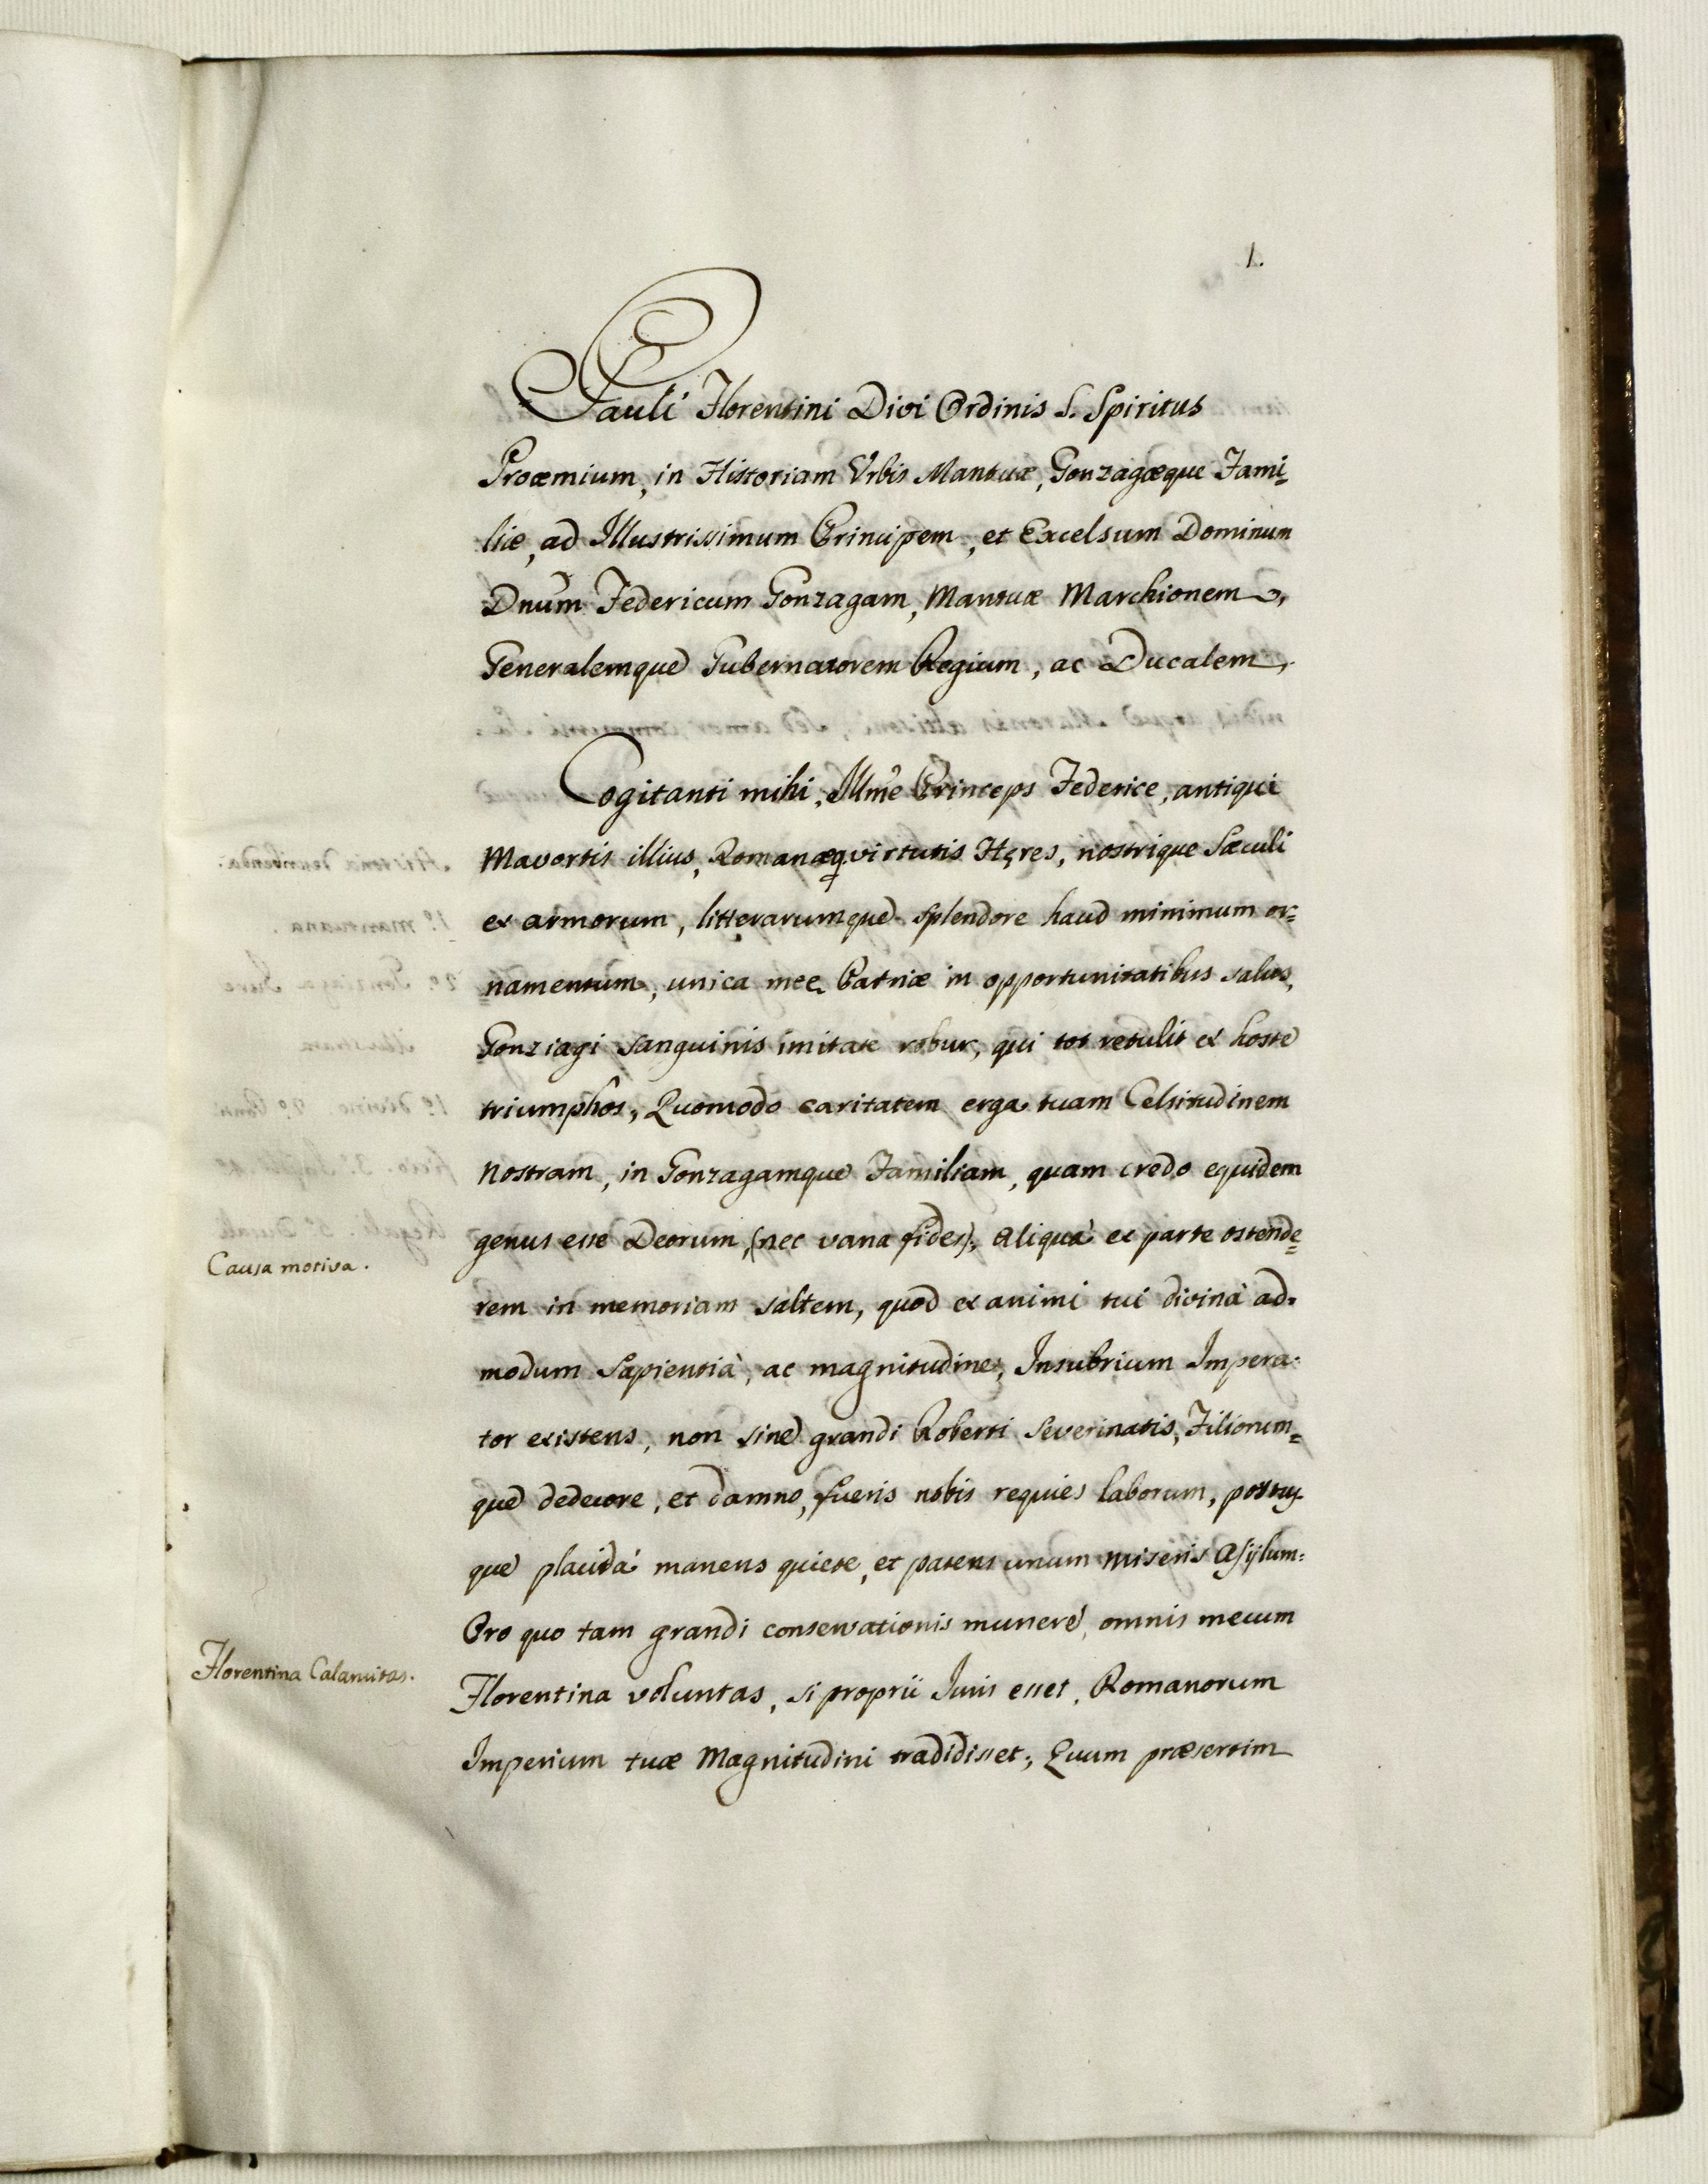 1.
Pauli Florentini Divi Ordinis S. Spiritus
Proæmium, in Historiam Vrbis Mantuæ, Gonzagæque Fami=
liæ, ad Illustrissimum Principem, et Excelsum Dominum
Dnum̃ Federicum Gonzagam, Mantuæ Marchionem,
Generalemque Gubernatorem Regium, ac Ducalem,
Cogitanti mihi, Illmẽ Princeps Federice, antiqui
Mavortis illius, Romanæq virtutis Hęres, nostrique Sæculi
ex armorum, litterarumque splendore haud minimum or=
namentum, unica meę Patriæ in opportunitatibus salus,
Gonziagi sanguinis imitate robur, qui tot retulit ex hoste
triumphos, Quomodo caritatem erga tuam Celsitudinem
nostram, in Gonzagamque Familiam, quam credo equidem
genus esse Deorum, (nec vana fides), aliquà ex parte ostende=
Causa motiva.
rem in memoriam saltem, quod ex animi tui divinà ad=
modum Sapientià, ac magnitudine, Insubrium Impera=
tor existens, non sine grandi Roberti Severinatis, Filiorum=
que dedecore, et damno, fueris nobis requies laborum,
que placidà manens quiete, et patens unum miseris Asÿlum:
Pro quo tam grandi conservationis munere, omnis mecum
Florentina Calamitas.
Florentina voluntas, si proprii Iuris esset, Romanorum
Imperium tuæ Magnitudini tradidisset; Quum præsertim